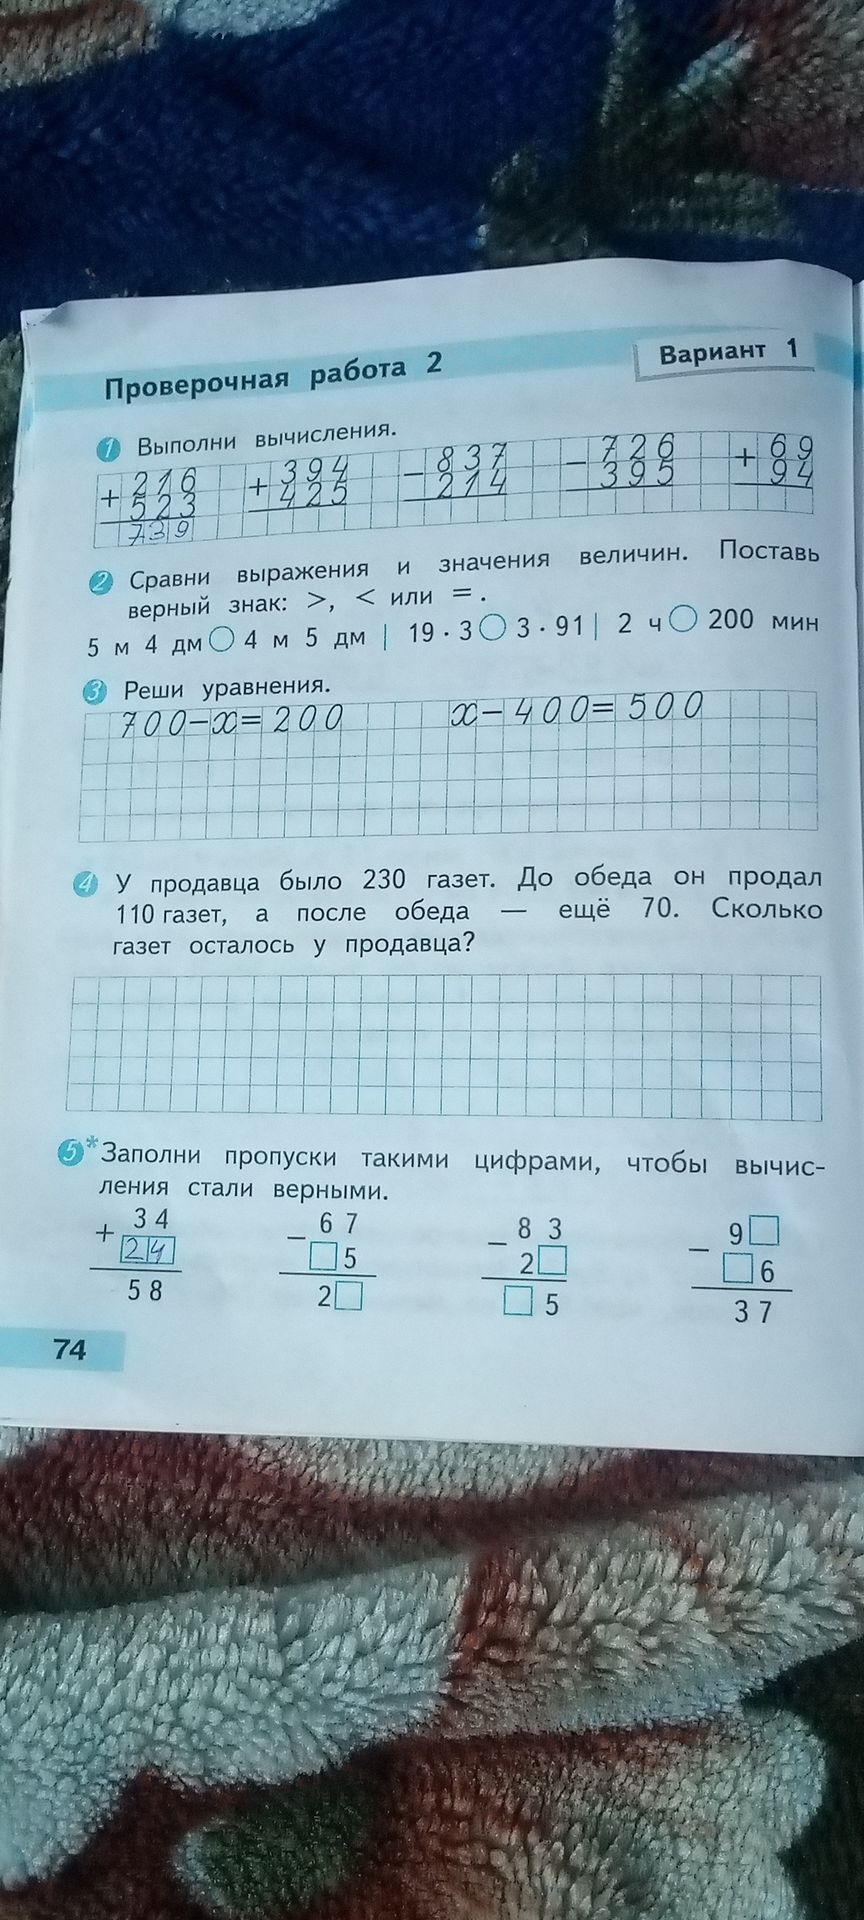 Проверочная работа 2
Вариант 1
1 Выполни вычисления.
+ 216 + 394 − 837 − 726 + 69
523 425 214 395 94
739
2 Сравни выражения и значения величин. Поставь
верный знак: >, < или = .
5 м 4 дм ○ 4 м 5 дм | 19 · 3 ○ 3 · 91 | 2 ч ○ 200 мин
3 Реши уравнения.
700−x=200 x−400=500
4 У продавца было 230 газет. До обеда он продал
110 газет, а после обеда — ещё 70. Сколько
газет осталось у продавца?
5* Заполни пропуски такими цифрами, чтобы вычис-
ления стали верными.
+ 34 − 67 − 83 − 9□
24 □5 2□ □6
58 2□ □5 37
74